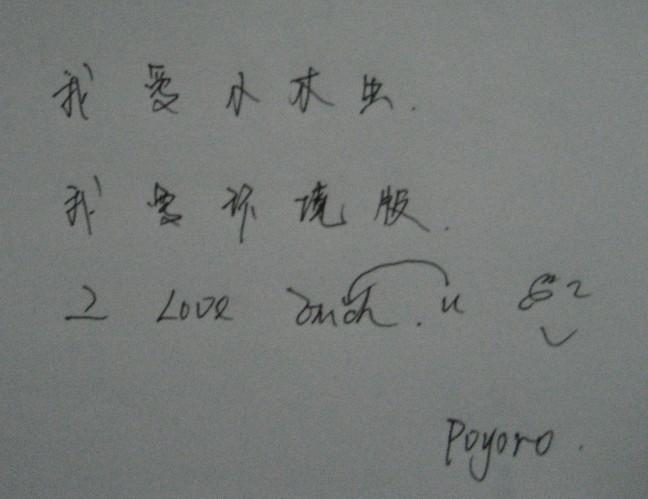 我爱小木虫.
我爱环境版.
I Love
Poyoro.